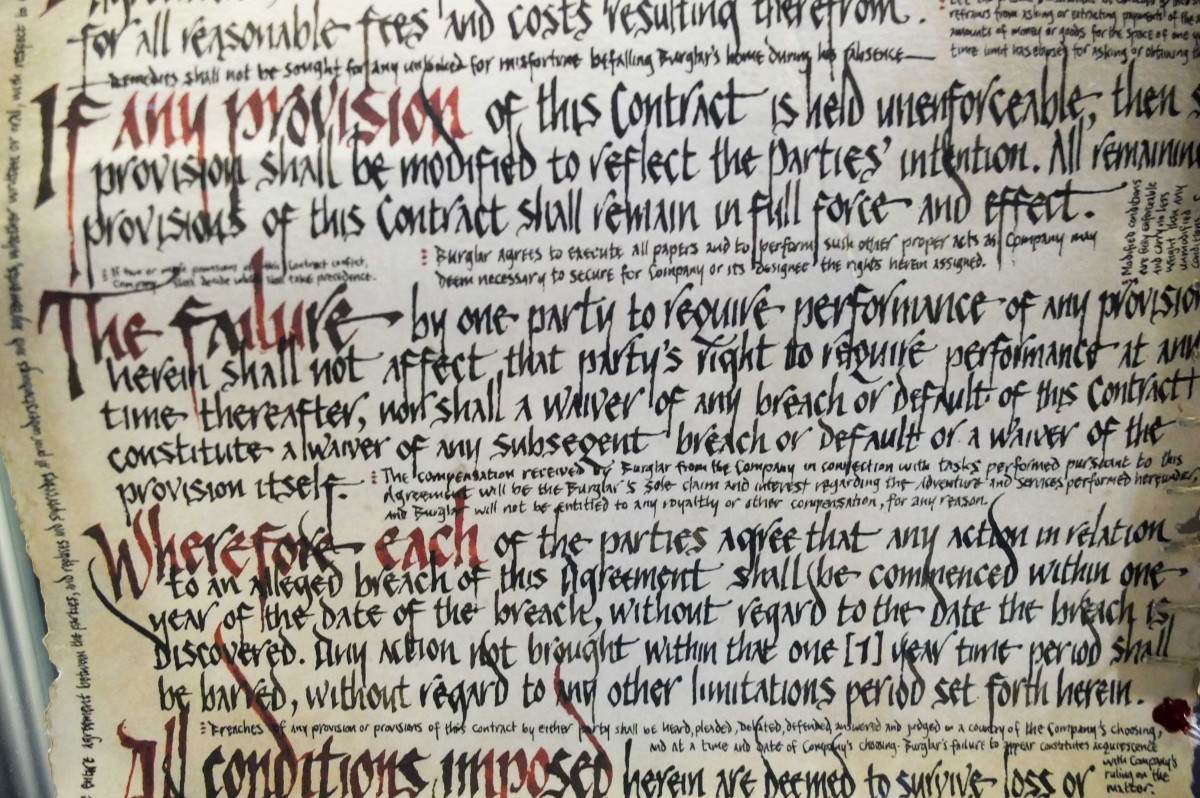 for all reasonable fees and costs resulting therefrom.
refrains from asking or extracting payments of the
amounts of money or goods for the space of one
time limit has elapsed for asking or obtaining
Remedies shall not be sought for any unlooked for misfortune befalling Burglar's home during his absence
If any provision of this Contract is held unenforceable, then
provision shall be modified to reflect the Parties' intention. All remaining
provisions of this Contract shall remain in full force and effect.
Modified conditions
are only enforceable
and carry no less
weight than any
unmodified
If two or more provisions of this Contract conflict,
Company shall decide which shall take precedence.
Burglar agrees to execute all papers and to perform such other proper acts as Company may
deem necessary to secure for Company or its Designee the rights herein assigned.
The failure by one party to require performance of any provision
herein shall not affect that party's right to require performance at any
time thereafter, nor shall a waiver of any breach or default of this Contract
constitute a waiver of any subseqent breach or default or a waiver of the
provision itself.
The compensation received by Burglar from the Company in connection with tasks performed pursuant to this
Agreement will be the Burglar's sole claim and interest regarding the Adventure and services performed hereunder,
and Burglar will not be entitled to any royalty or other compensation, for any reason.
Wherefore each of the parties agree that any action in relation
to an alleged breach of this Agreement shall be commenced within one
year of the date of the breach, without regard to the date the breach is
discovered. Any action not brought within that one [1] year time period shall
be barred, without regard to any other limitations period set forth herein.
Breaches of any provision or provisions of this Contract by either party shall be heard, pleaded, debated, defended, answered and judged in a country of the Company's choosing,
and at a time and date of Company's choosing. Burglar's failure to appear constitutes acquiescence
with Company's
ruling on the
matter.
All conditions imposed herein are deemed to survive loss or
entire agreement between the parties, and replaces and supersedes all prior understandings and agreements, whether written or oral, with respect to